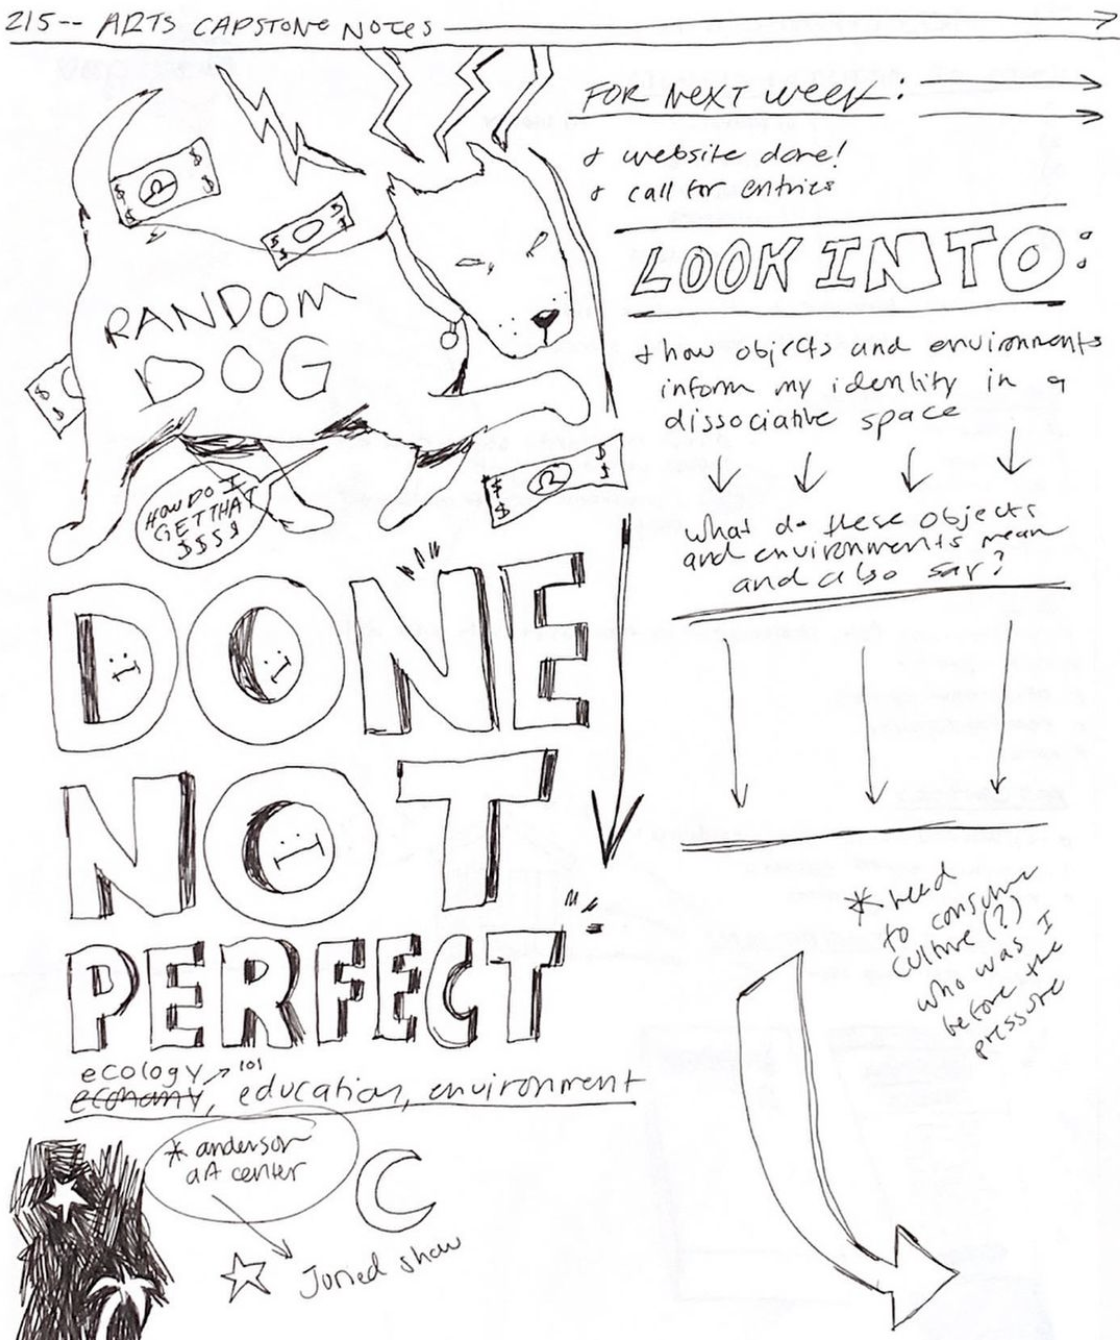 215-- ARTS CAPSTONE NOTES
FOR NEXT WEEK:
+ website done!
+ call for entries
LOOK INTO:
+ how objects and environments
inform my identity in a
dissociative space
what do these objects
and environments mean
and also say?
* need
to consume
culture(?)
who was I
before the
pressure
$ $ $ $
$ $
RANDOM
DOG
$ $
$ $ $ $
HOW DO I
GET THAT
$$$$
DONE
NOT
PERFECT
ecology → 101
economy, education, environment
* anderson
aA center
Juried show